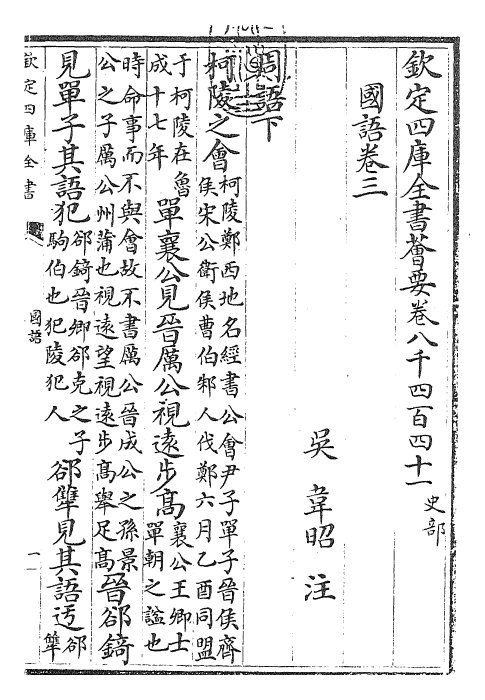 欽定四庫全書薈要卷八千四百四十一 史部
國語卷三
吳 韋昭 注
周語下
柯陵之會 柯陵鄭西地名經書公會尹子單子晉侯齊
侯宋公衛侯曹伯邾人伐鄭六月乙酉同盟
于柯陵在魯
成十七年
單襄公見晉厲公視遠步高 襄公王卿士
單朝之謚也
時命事而不與會故不書厲公晉成公之孫景
公之子厲公州蒲也視遠望視遠步髙舉足髙
晉郤錡
見單子其語犯 郤錡晉卿郤克之子
駒伯也犯陵犯人
郤犨見其語迃 郤
犨
欽定四庫全書
國語
一